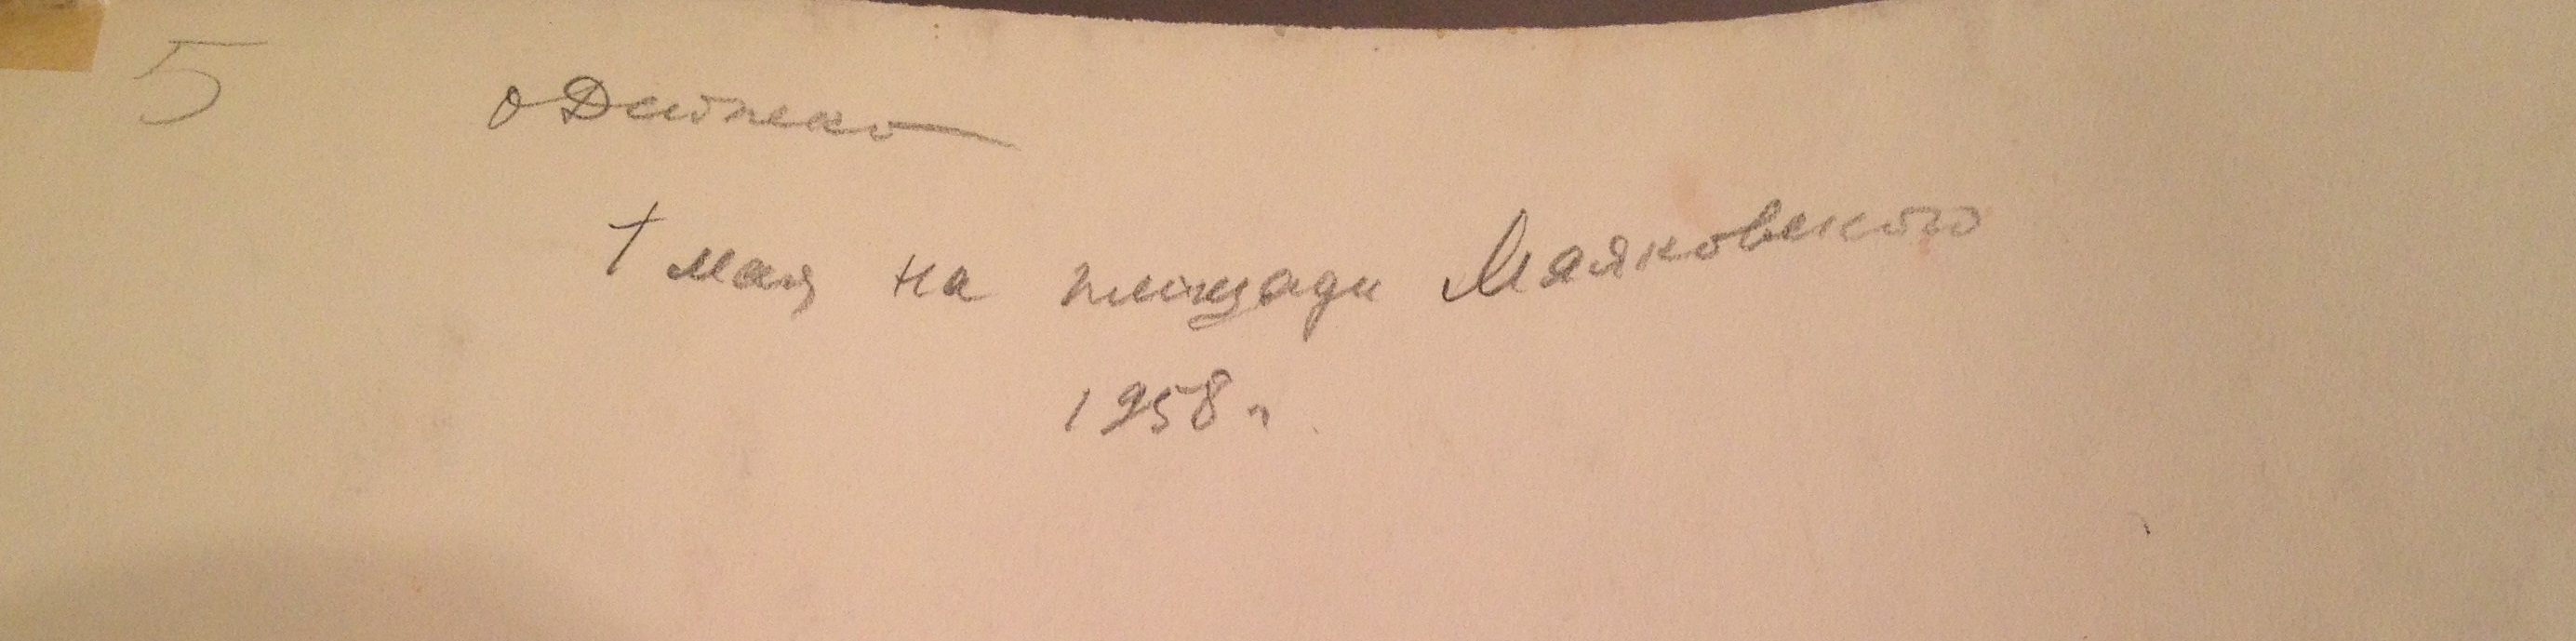 5
Дейнеко
1 мая на площади Маяковского
1958 г.